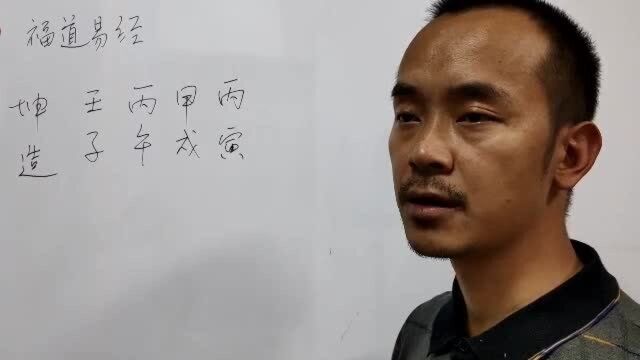 福道易经
坤 壬 丙 甲 丙
造 子 午 戌 寅